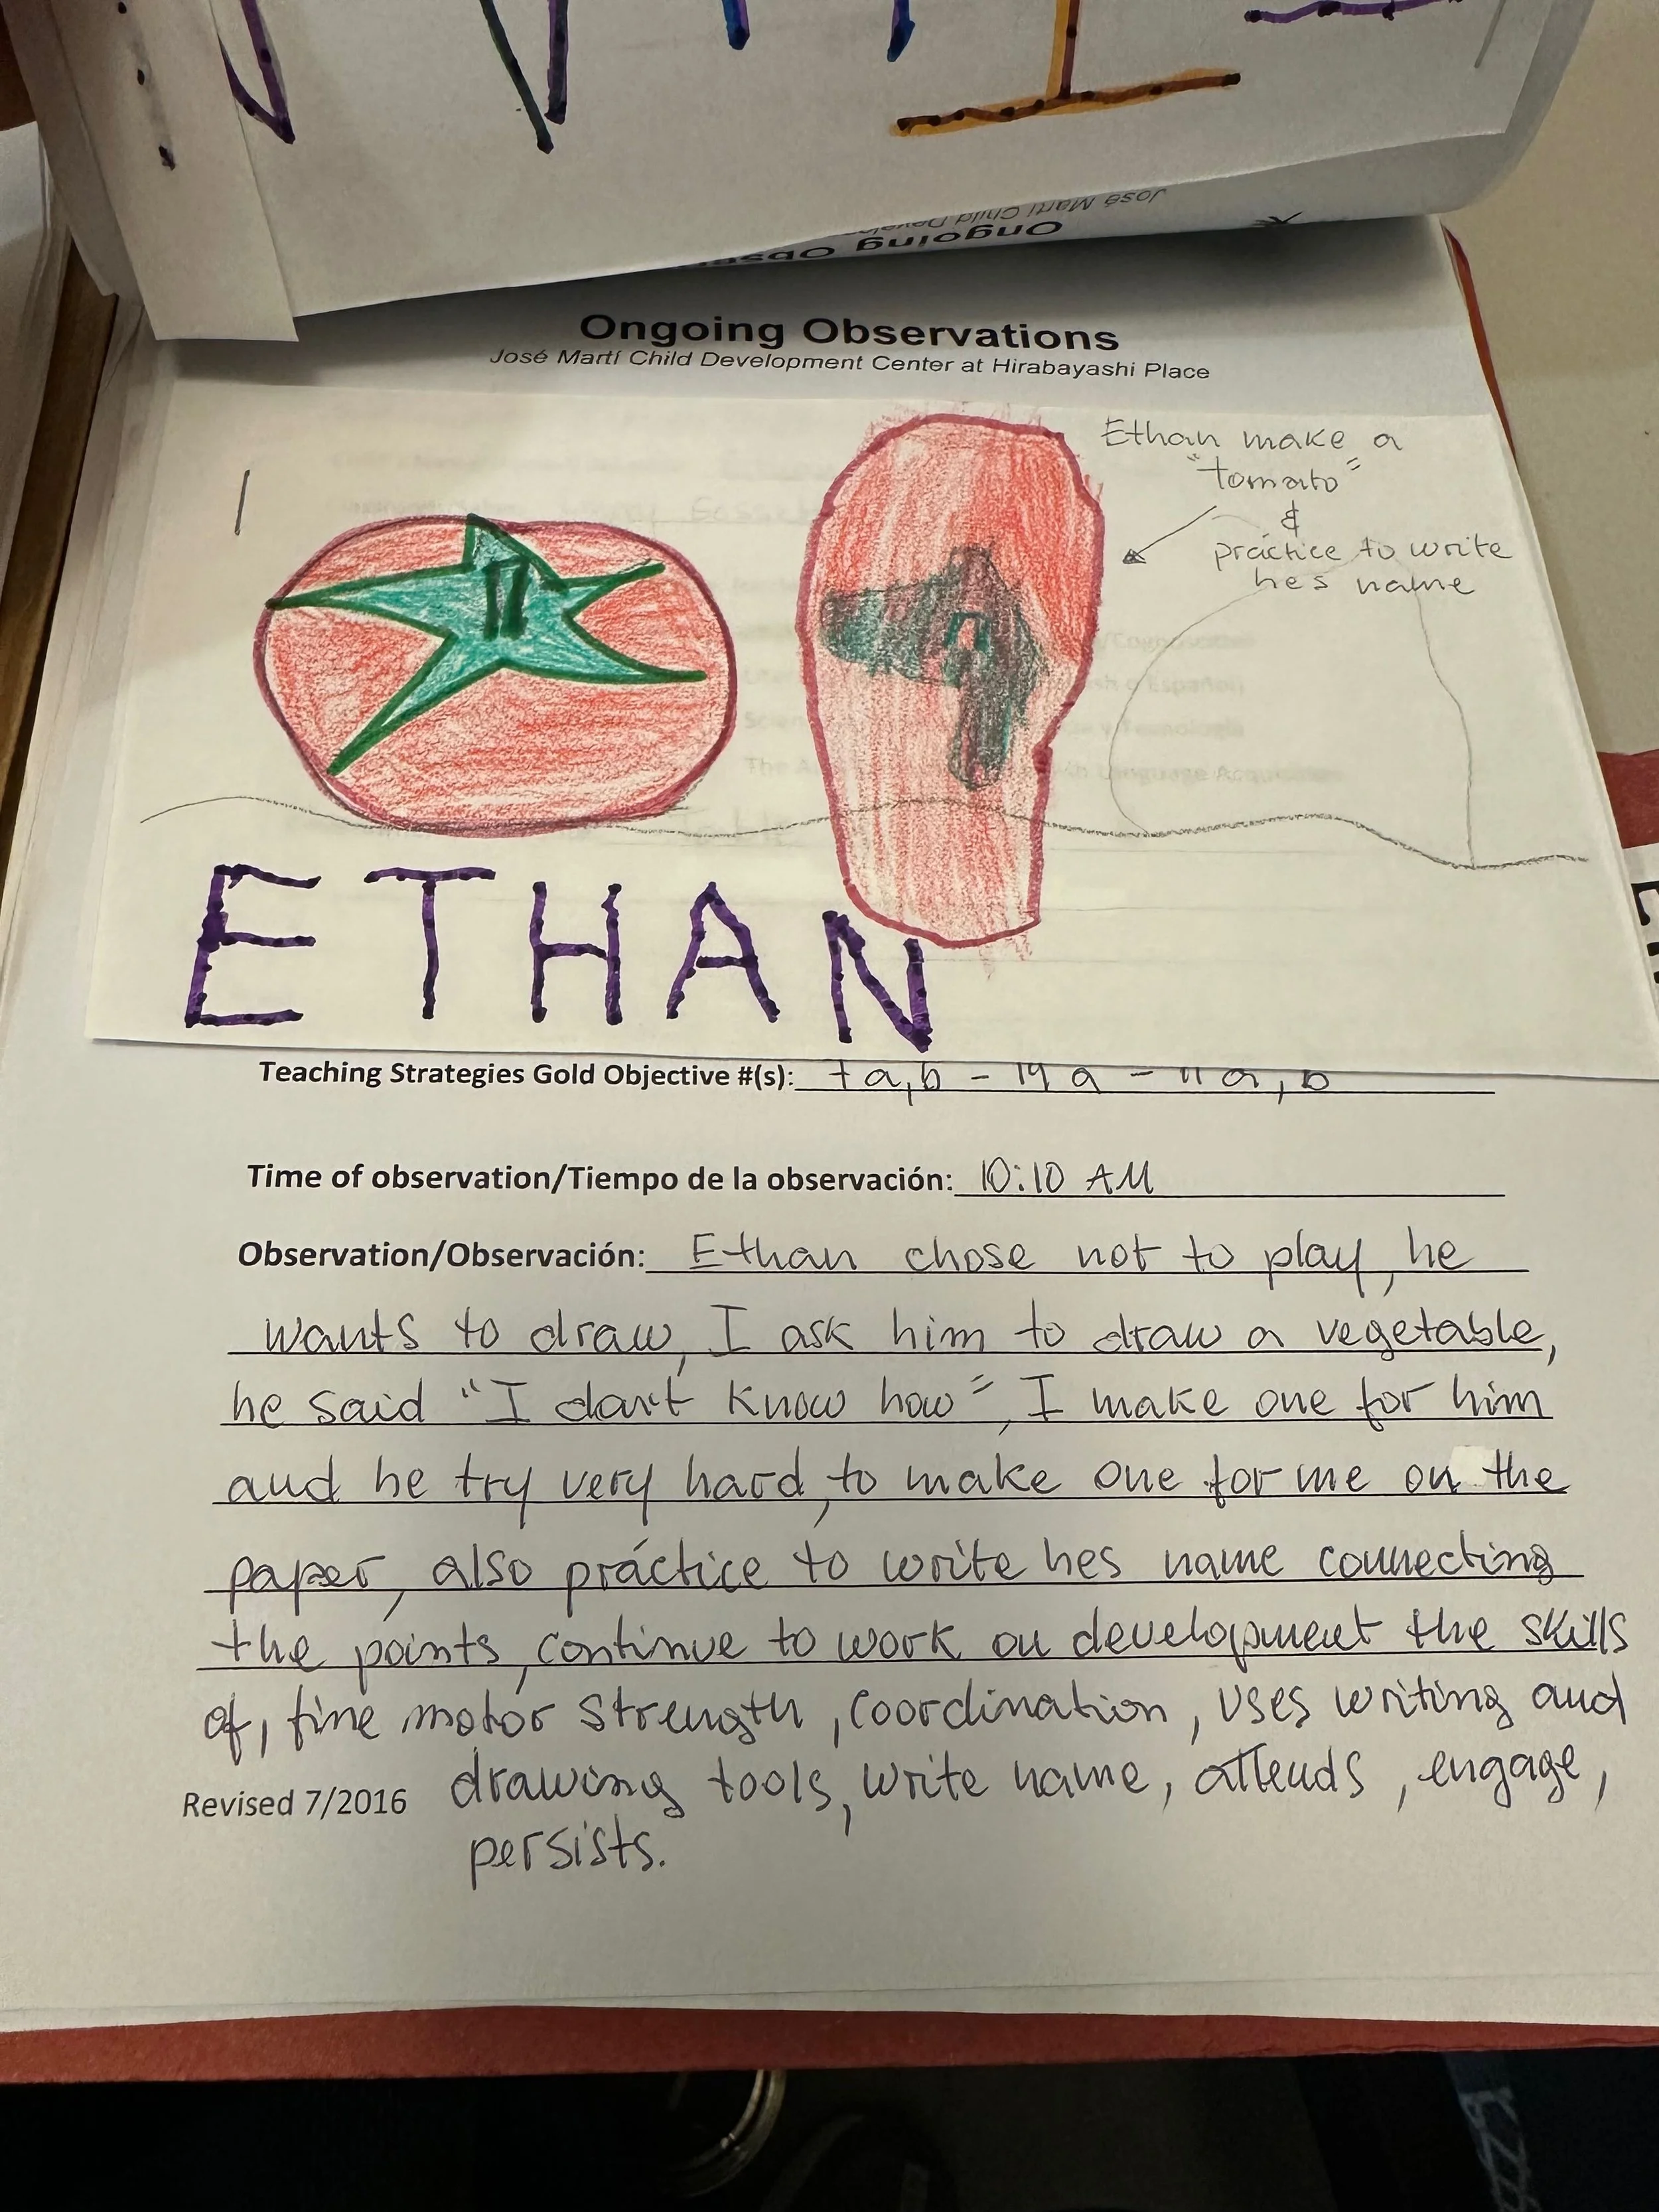 José Martí Child Develo
Ongoing Obse
Ongoing Observations
José Martí Child Development Center at Hirabayashi Place
Ethan make a
"tomato"
&
práctice to write
hes name
ETHAN
Teaching Strategies Gold Objective #(s): 7a,b - 19a - 11a,b
Time of observation/Tiempo de la observación: 10:10 AM
Observation/Observación: Ethan chose not to play, he
wants to draw, I ask him to draw a vegetable,
he said "I don't know how", I make one for him
and he try very hard, to make one for me on the
paper, also práctice to write hes name connecting
the points, continue to work on development the skills
of, fine motor strength, coordination, uses writing and
Revised 7/2016 drawing tools, write name, attends, engage,
persists.